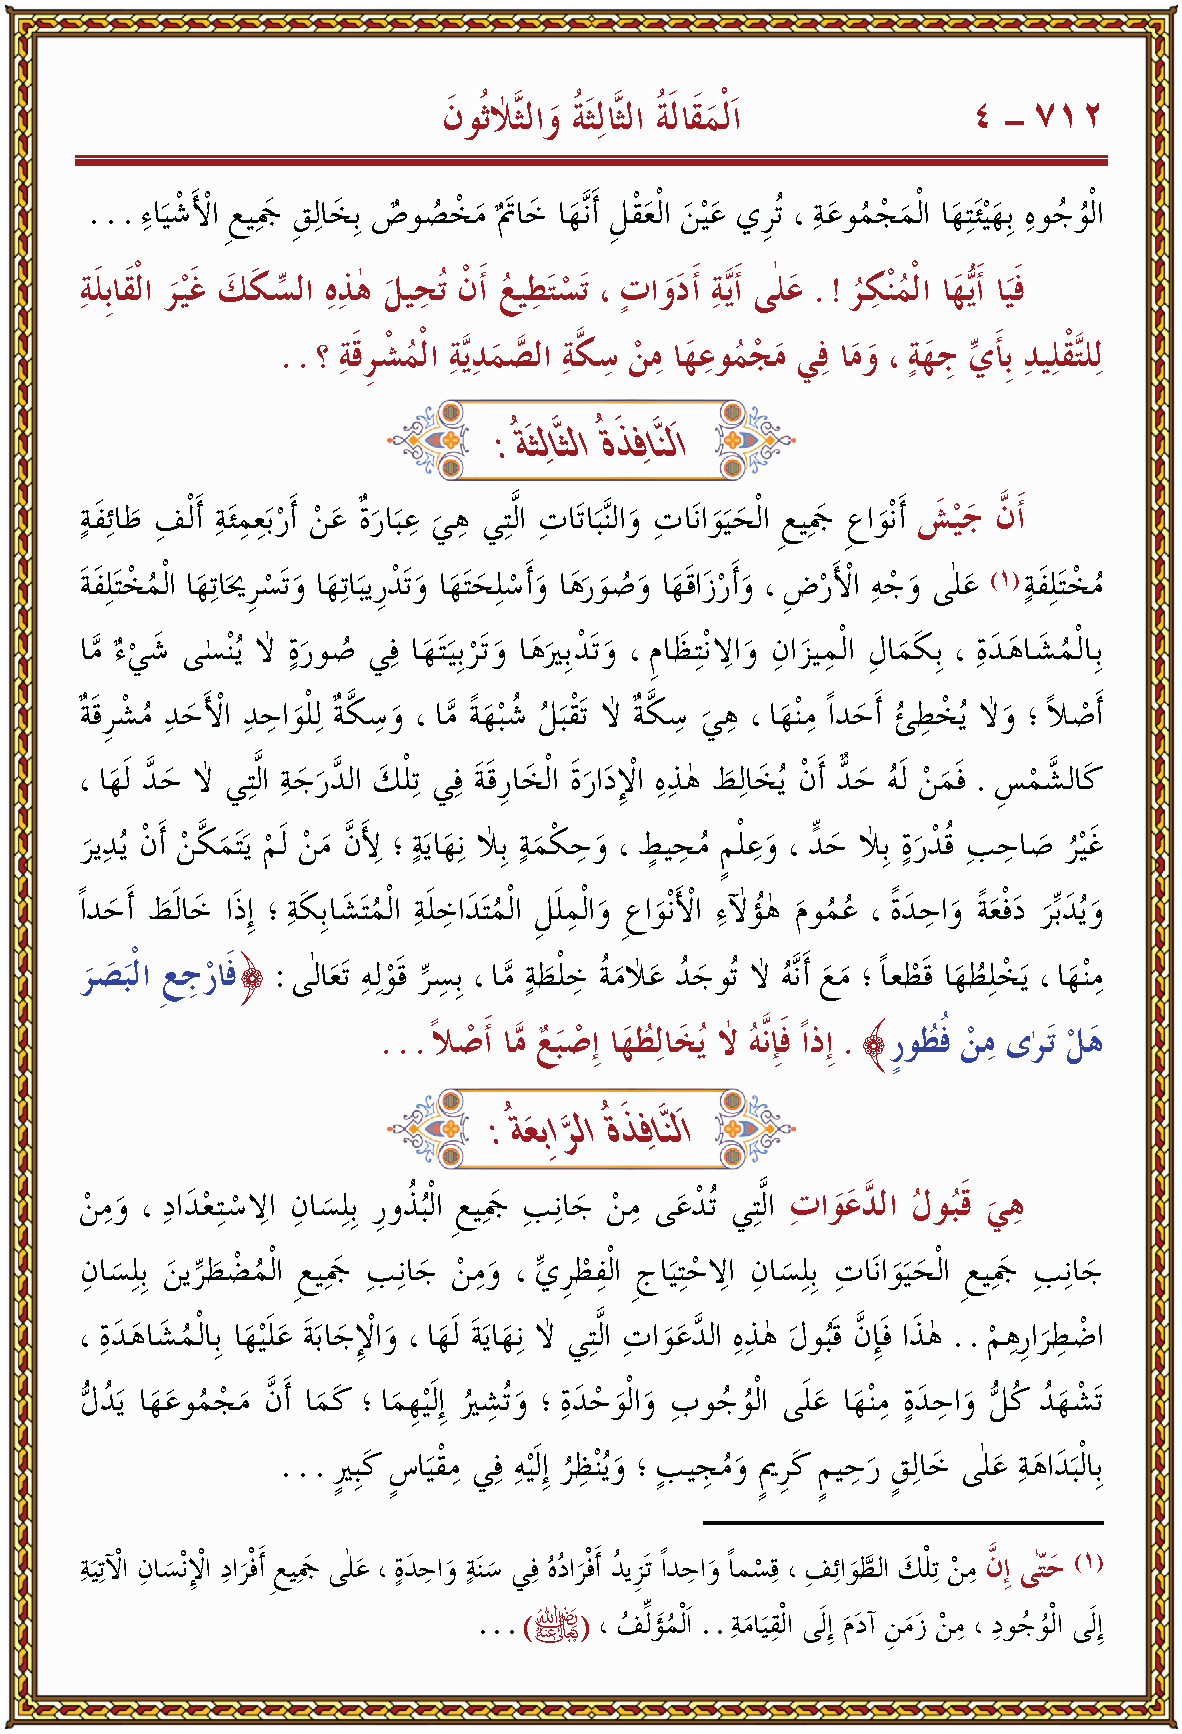 ٧١٢ – ٤ اَلْمَقَالَةُ الثَّالِثَةُ وَالثَّلاٰثُونَ
الْوُجُوهِ بِهَيْئَتِهَا الْمَجْمُوعَةِ ، تُرِي عَيْنَ الْعَقْلِ أَنَّهَا خَاتَمٌ مَخْصُوصٌ بِخَالِقِ جَمِيعِ الْأَشْيَاءِ . . .
فَيَا أَيُّهَا الْمُنْكِرُ ! . عَلٰى أَيَّةِ أَدَوَاتٍ ، تَسْتَطِيعُ أَنْ تُحِيلَ هٰذِهِ السِّكَكَ غَيْرَ الْقَابِلَةِ
لِلتَّقْلِيدِ بِأَيِّ جِهَةٍ ، وَمَا فِي مَجْمُوعِهَا مِنْ سِكَّةِ الصَّمَدِيَّةِ الْمُشْرِقَةِ ؟ . .
اَلنَّافِذَةُ الثَّالِثَةُ :
أَنَّ جَيْشَ أَنْوَاعِ جَمِيعِ الْحَيَوَانَاتِ وَالنَّبَاتَاتِ الَّتِي هِيَ عِبَارَةٌ عَنْ أَرْبَعِمِئَةِ أَلْفِ طَائِفَةٍ
مُخْتَلِفَةٍ (١) عَلٰى وَجْهِ الْأَرْضِ ، وَأَرْزَاقَهَا وَصُوَرَهَا وَأَسْلِحَتَهَا وَتَدْرِيبَاتِهَا وَتَسْرِيحَاتِهَا الْمُخْتَلِفَةَ
بِالْمُشَاهَدَةِ ، بِكَمَالِ الْمِيزَانِ وَالِانْتِظَامِ ، وَتَدْبِيرَهَا وَتَرْبِيَتَهَا فِي صُورَةٍ لاٰ يُنْسٰى شَيْءٌ مَّا
أَصْلاً ؛ وَلاٰ يُخْطِئُ أَحَداً مِنْهَا ، هِيَ سِكَّةٌ لاٰ تَقْبَلُ شُبْهَةً مَّا ، وَسِكَّةٌ لِلْوَاحِدِ الْأَحَدِ مُشْرِقَةٌ
كَالشَّمْسِ . فَمَنْ لَهُ حَدٌّ أَنْ يُخَالِطَ هٰذِهِ الْإِدَارَةَ الْخَارِقَةَ فِي تِلْكَ الدَّرَجَةِ الَّتِي لاٰ حَدَّ لَهَا ،
غَيْرُ صَاحِبِ قُدْرَةٍ بِلاٰ حَدٍّ ، وَعِلْمٍ مُحِيطٍ ، وَحِكْمَةٍ بِلاٰ نِهَايَةٍ ؛ لِأَنَّ مَنْ لَمْ يَتَمَكَّنْ أَنْ يُدِيرَ
وَيُدَبِّرَ دَفْعَةً وَاحِدَةً ، عُمُومَ هٰؤُلآٰءِ الْأَنْوَاعِ وَالْمِلَلِ الْمُتَدَاخِلَةِ الْمُتَشَابِكَةِ ؛ إِذَا خَالَطَ أَحَداً
مِنْهَا ، يَخْلِطُهَا قَطْعاً ؛ مَعَ أَنَّهُ لاٰ تُوجَدُ عَلاٰمَةُ خِلْطَةٍ مَّا ، بِسِرِّ قَوْلِهِ تَعَالٰى : ﴿فَارْجِعِ الْبَصَرَ
هَلْ تَرٰى مِنْ فُطُورٍ﴾ . إِذاً فَإِنَّهُ لاٰ يُخَالِطُهَا إِصْبَعٌ مَّا أَصْلاً . . .
اَلنَّافِذَةُ الرَّابِعَةُ :
هِيَ قَبُولُ الدَّعَوَاتِ الَّتِي تُدْعَى مِنْ جَانِبِ جَمِيعِ الْبُذُورِ بِلِسَانِ الِاسْتِعْدَادِ ، وَمِنْ
جَانِبِ جَمِيعِ الْحَيَوَانَاتِ بِلِسَانِ الِاحْتِيَاجِ الْفِطْرِيِّ ، وَمِنْ جَانِبِ جَمِيعِ الْمُضْطَرِّينَ بِلِسَانِ
اضْطِرَارِهِمْ . . هٰذَا فَإِنَّ قَبُولَ هٰذِهِ الدَّعَوَاتِ الَّتِي لاٰ نِهَايَةَ لَهَا ، وَالْإِجَابَةَ عَلَيْهَا بِالْمُشَاهَدَةِ ،
تَشْهَدُ كُلُّ وَاحِدَةٍ مِنْهَا عَلَى الْوُجُوبِ وَالْوَحْدَةِ ؛ وَتُشِيرُ إِلَيْهِمَا ؛ كَمَا أَنَّ مَجْمُوعَهَا يَدُلُّ
بِالْبَدَاهَةِ عَلٰى خَالِقٍ رَحِيمٍ كَرِيمٍ وَمُجِيبٍ ؛ وَيُنْظِرُ إِلَيْهِ فِي مِقْيَاسٍ كَبِيرٍ . . .
(١) حَتّٰى إِنَّ مِنْ تِلْكَ الطَّوَائِفِ ، قِسْماً وَاحِداً تَزِيدُ أَفْرَادُهُ فِي سَنَةٍ وَاحِدَةٍ ، عَلٰى جَمِيعِ أَفْرَادِ الْإِنْسَانِ الْآتِيَةِ
إِلَى الْوُجُودِ ، مِنْ زَمَنِ آدَمَ إِلَى الْقِيَامَةِ . . اَلْمُؤَلِّفُ ، (رَضِيَ اللّٰهُ تَعَالٰى عَنْهُ) . . .